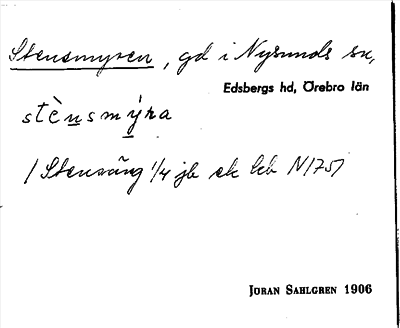 Stensmyren, gd i Nysunds sn,
Edsbergs hd, Örebro län
stè̀nsmýra
/ Stensäng 1/4 jb ek leb N1757
JÖRAN SAHLGREN 1906